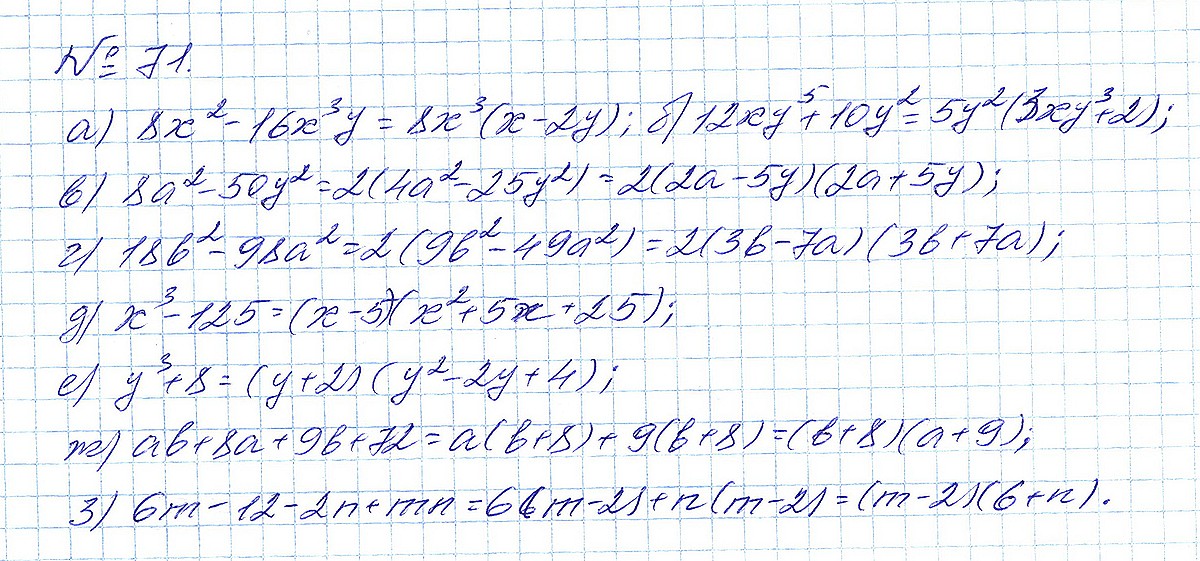 № 71.
а) 8x² - 16x³y = 8x³(x - 2y); б) 12xy⁵ + 10y² = 5y²(3xy³ + 2);
в) 8a² - 50y² = 2(4a² - 25y²) = 2(2a - 5y)(2a + 5y);
г) 18b² - 98a² = 2(9b² - 49a²) = 2(3b - 7a)(3b + 7a);
д) x³ - 125 = (x - 5)(x² + 5x + 25);
е) y³ + 8 = (y + 2)(y² - 2y + 4);
ж) ab + 8a + 9b + 72 = a(b + 8) + 9(b + 8) = (b + 8)(a + 9);
з) 6m - 12 - 2n + mn = 6(m - 2) + n(m - 2) = (m - 2)(6 + n).